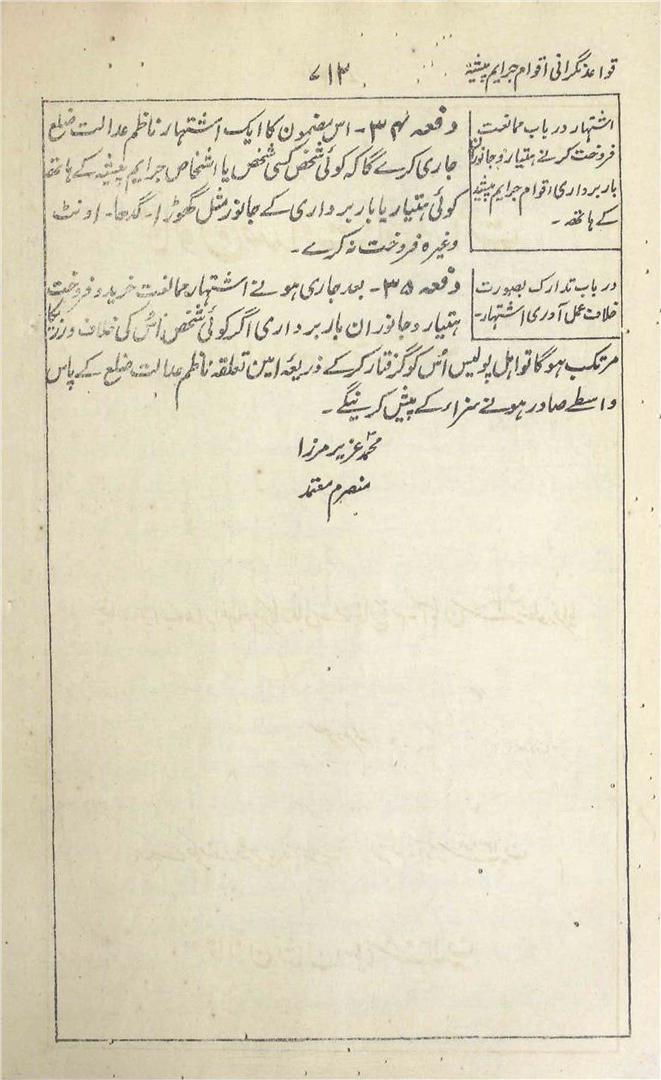 قواعد نگرانی اقوام جرایم پیشہ
۷۱۳
اشتہار در باب ممانعت
فروخت کرنے ہتیار و جانوران
باربرداری اقوام جرایم پیشہ
کے ہاتھ۔
دفعہ ۳۴۔ اس مضمون کا ایک اشتہار ناظم عدالت ضلع
جاری کرے گا کہ کوئی شخص کسی شخص یا اشخاص جرایم پیشہ کے ہاتھ
کوئی ہتیار یا باربرداری کے جانور مثل گھوڑا۔ گدھا۔ اونٹ
وغیرہ فروخت نہ کرے۔
در باب تدارک بصورت
خلاف عمل آوری اشتہار۔
دفعہ ۳۵۔ بعد جاری ہونے اشتہار ممانعت خرید و فروخت
ہتیار و جانوران باربرداری اگر کوئی شخص اُس کی خلاف ورزی کا
مرتکب ہوگا تو اہل پولیس اُس کو گرفتار کرکے ذریعۂ امین تعلقہ ناظم عدالت ضلع کے پاس
واسطے صادر ہونے سزاء کے پیش کرینگے۔
محمد عزیز مرزا
منصرم معتمد